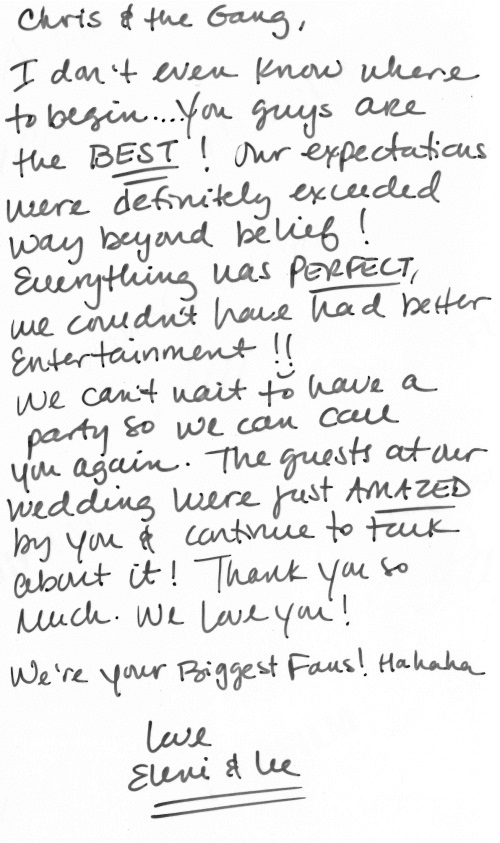 Chris & the Gang,
I don't even know where
to begin....You guys are
the BEST! Our expectations
were definitely exceeded
way beyond belief!
Everything was PERFECT,
we couldn't have had better
Entertainment!!
We can't wait to have a
party so we can call
you again. The guests at our
wedding were just AMAZED
by you & continue to talk
about it! Thank you so
Much. We Love you!
We're your Biggest Fans! Hahaha
Love
Eleni & Lee